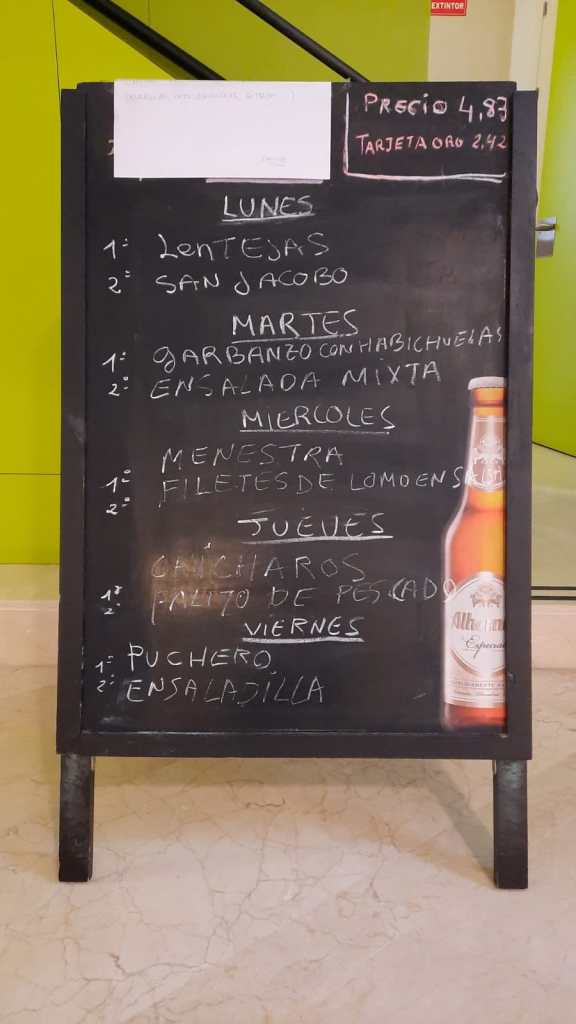 EXTINTOR
PRECIO 4,83
TARJETA ORO 2,42
LUNES
1º LENTEJAS
2º SAN JACOBO
MARTES
1º GARBANZO CON HABICHUELAS
2º ENSALADA MIXTA
MIERCOLES
1º MENESTRA
2º FILETES DE LOMO EN
JUEVES
1º CHICHAROS
2º PALITO DE PESCADO
VIERNES
1º PUCHERO
2º ENSALADILLA
Especial